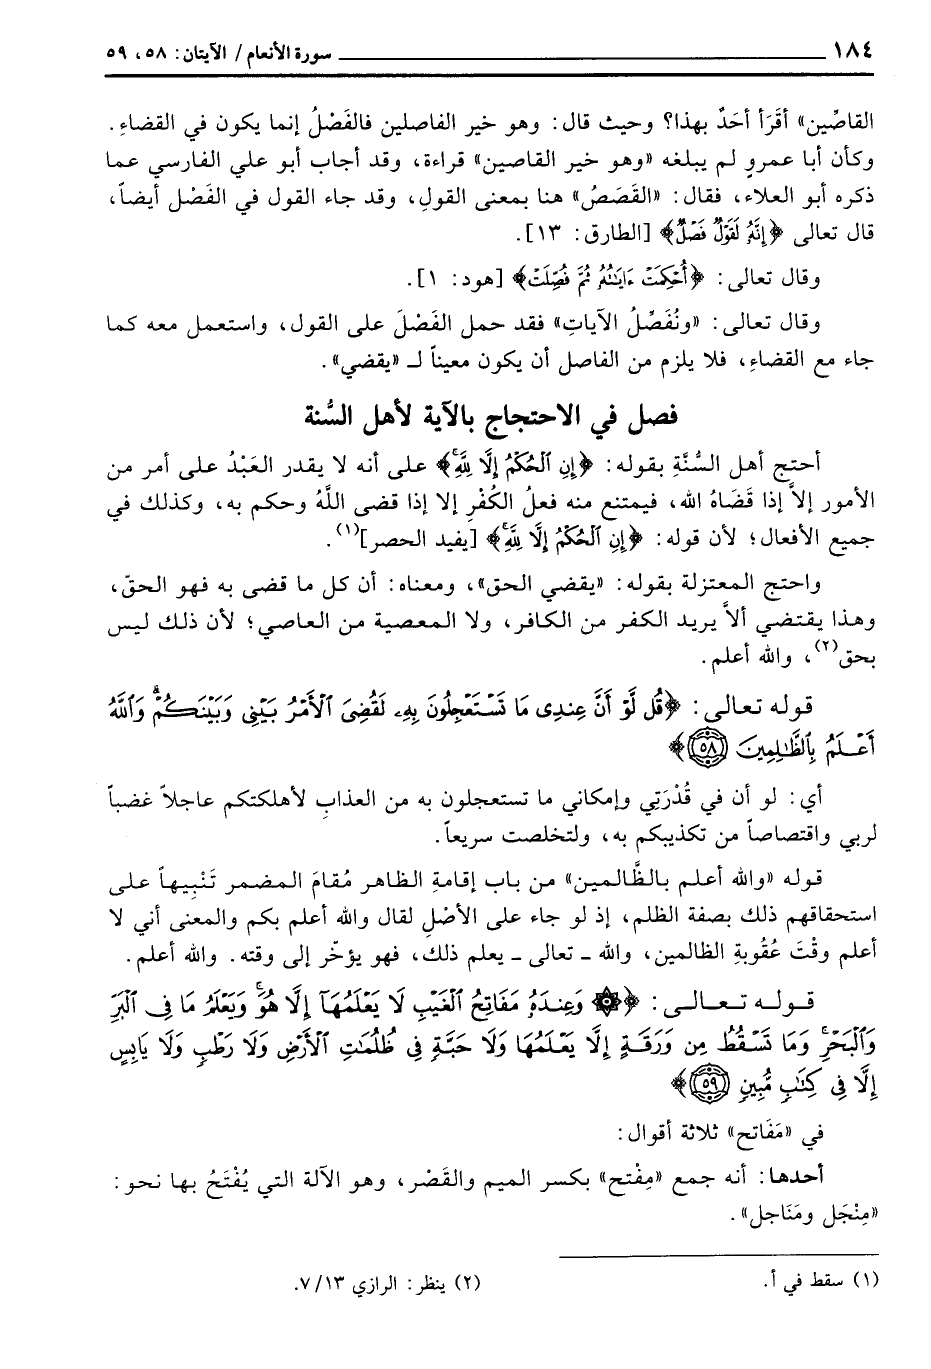 ١٨٤ ــــــ سورة الأنعام / الآيتان: ٥٨، ٥٩
القاصِّين» أقَرَأ أحَدٌ بهذا؟ وحيث قال: وهو خير الفاصلين فالفَصْلُ إنما يكون في القضاءِ.
وكأن أبا عمروٍ لم يبلغه «وهو خير القاصين» قراءة، وقد أجاب أبو علي الفارسي عما
ذكره أبو العلاء، فقال: «القَصَصُ» هنا بمعنى القولِ، وقد جاء القول في الفَصْل أيضاً،
قال تعالى ﴿إِنَّهُ لَقَوْلٌ فَصْلٌ﴾ [الطارق: ١٣].
وقال تعالى: ﴿أُحْكِمَتْ ءَايَٰتُهُ ثُمَّ فُصِّلَتْ﴾ [هود: ١].
وقال تعالى: «ونُفَصِّلُ الآياتِ» فقد حمل الفَصْلَ على القول، واستعمل معه كما
جاء مع القضاءِ، فلا يلزم من الفاصل أن يكون معيناً لـ «يقضي».
فصل في الاحتجاج بالآية لأهل السُّنة
أحتج أهل السُّنَّةِ بقوله: ﴿إِنِ ٱلْحُكْمُ إِلَّا لِلَّهِ﴾ على أنه لا يقدر العَبْدُ على أمر من
الأمور إلاَّ إذا قَضَاهُ الله، فيمتنع منه فعلُ الكُفْرِ إلا إذا قضى اللَّهُ وحكم به، وكذلك في
جميع الأفعال؛ لأن قوله: ﴿إِنِ ٱلْحُكْمُ إِلَّا لِلَّهِ﴾ [يفيد الحصر](١).
واحتج المعتزلة بقوله: «يقضي الحق»، ومعناه: أن كل ما قضى به فهو الحقّ،
وهذا يقتضي ألاَّ يريد الكفر من الكافر، ولا المعصية من العاصي؛ لأن ذلك ليس
بحق(٢)، والله أعلم.
قوله تعالى: ﴿قُل لَّوْ أَنَّ عِندِى مَا تَسْتَعْجِلُونَ بِهِۦ لَقُضِىَ ٱلْأَمْرُ بَيْنِى وَبَيْنَكُمْۗ وَٱللَّهُ
أَعْلَمُ بِٱلظَّٰلِمِينَ ٥٨﴾
أي: لو أن في قُدْرَتِي وإمكاني ما تستعجلون به من العذابِ لأهلكتكم عاجلاً غضباً
لربي واقتصاصاً من تكذيبكم به، ولتخلصت سريعاً.
قوله «والله أعلم بالظَّالمين» من باب إقامةِ الظاهر مُقامَ المضمر تَنْبِيهاً على
استحقاقهم ذلك بصفة الظلم، إذ لو جاء على الأصْلِ لقال والله أعلم بكم والمعنى أني لا
أعلم وقْتَ عُقُوبةِ الظالمين، والله ـ تعالى ـ يعلم ذلك، فهو يؤخّر إلى وقته. والله أعلم.
قوله تعالى: ﴿۞ وَعِندَهُ مَفَاتِحُ ٱلْغَيْبِ لَا يَعْلَمُهَآ إِلَّا هُوَۚ وَيَعْلَمُ مَا فِى ٱلْبَرِّ
وَٱلْبَحْرِۚ وَمَا تَسْقُطُ مِن وَرَقَةٍ إِلَّا يَعْلَمُهَا وَلَا حَبَّةٍ فِى ظُلُمَٰتِ ٱلْأَرْضِ وَلَا رَطْبٍ وَلَا يَابِسٍ
إِلَّا فِى كِتَٰبٍ مُّبِينٍ ٥٩﴾
في «مَفَاتح» ثلاثة أقوال:
أحدها: أنه جمع «مِفْتح» بكسر الميم والقَصْر، وهو الآلة التي يُفْتَحُ بها نحو:
«مِنْجَل ومَنَاجل».
(١) سقط في أ. (٢) ينظر: الرازي ٧/١٣.